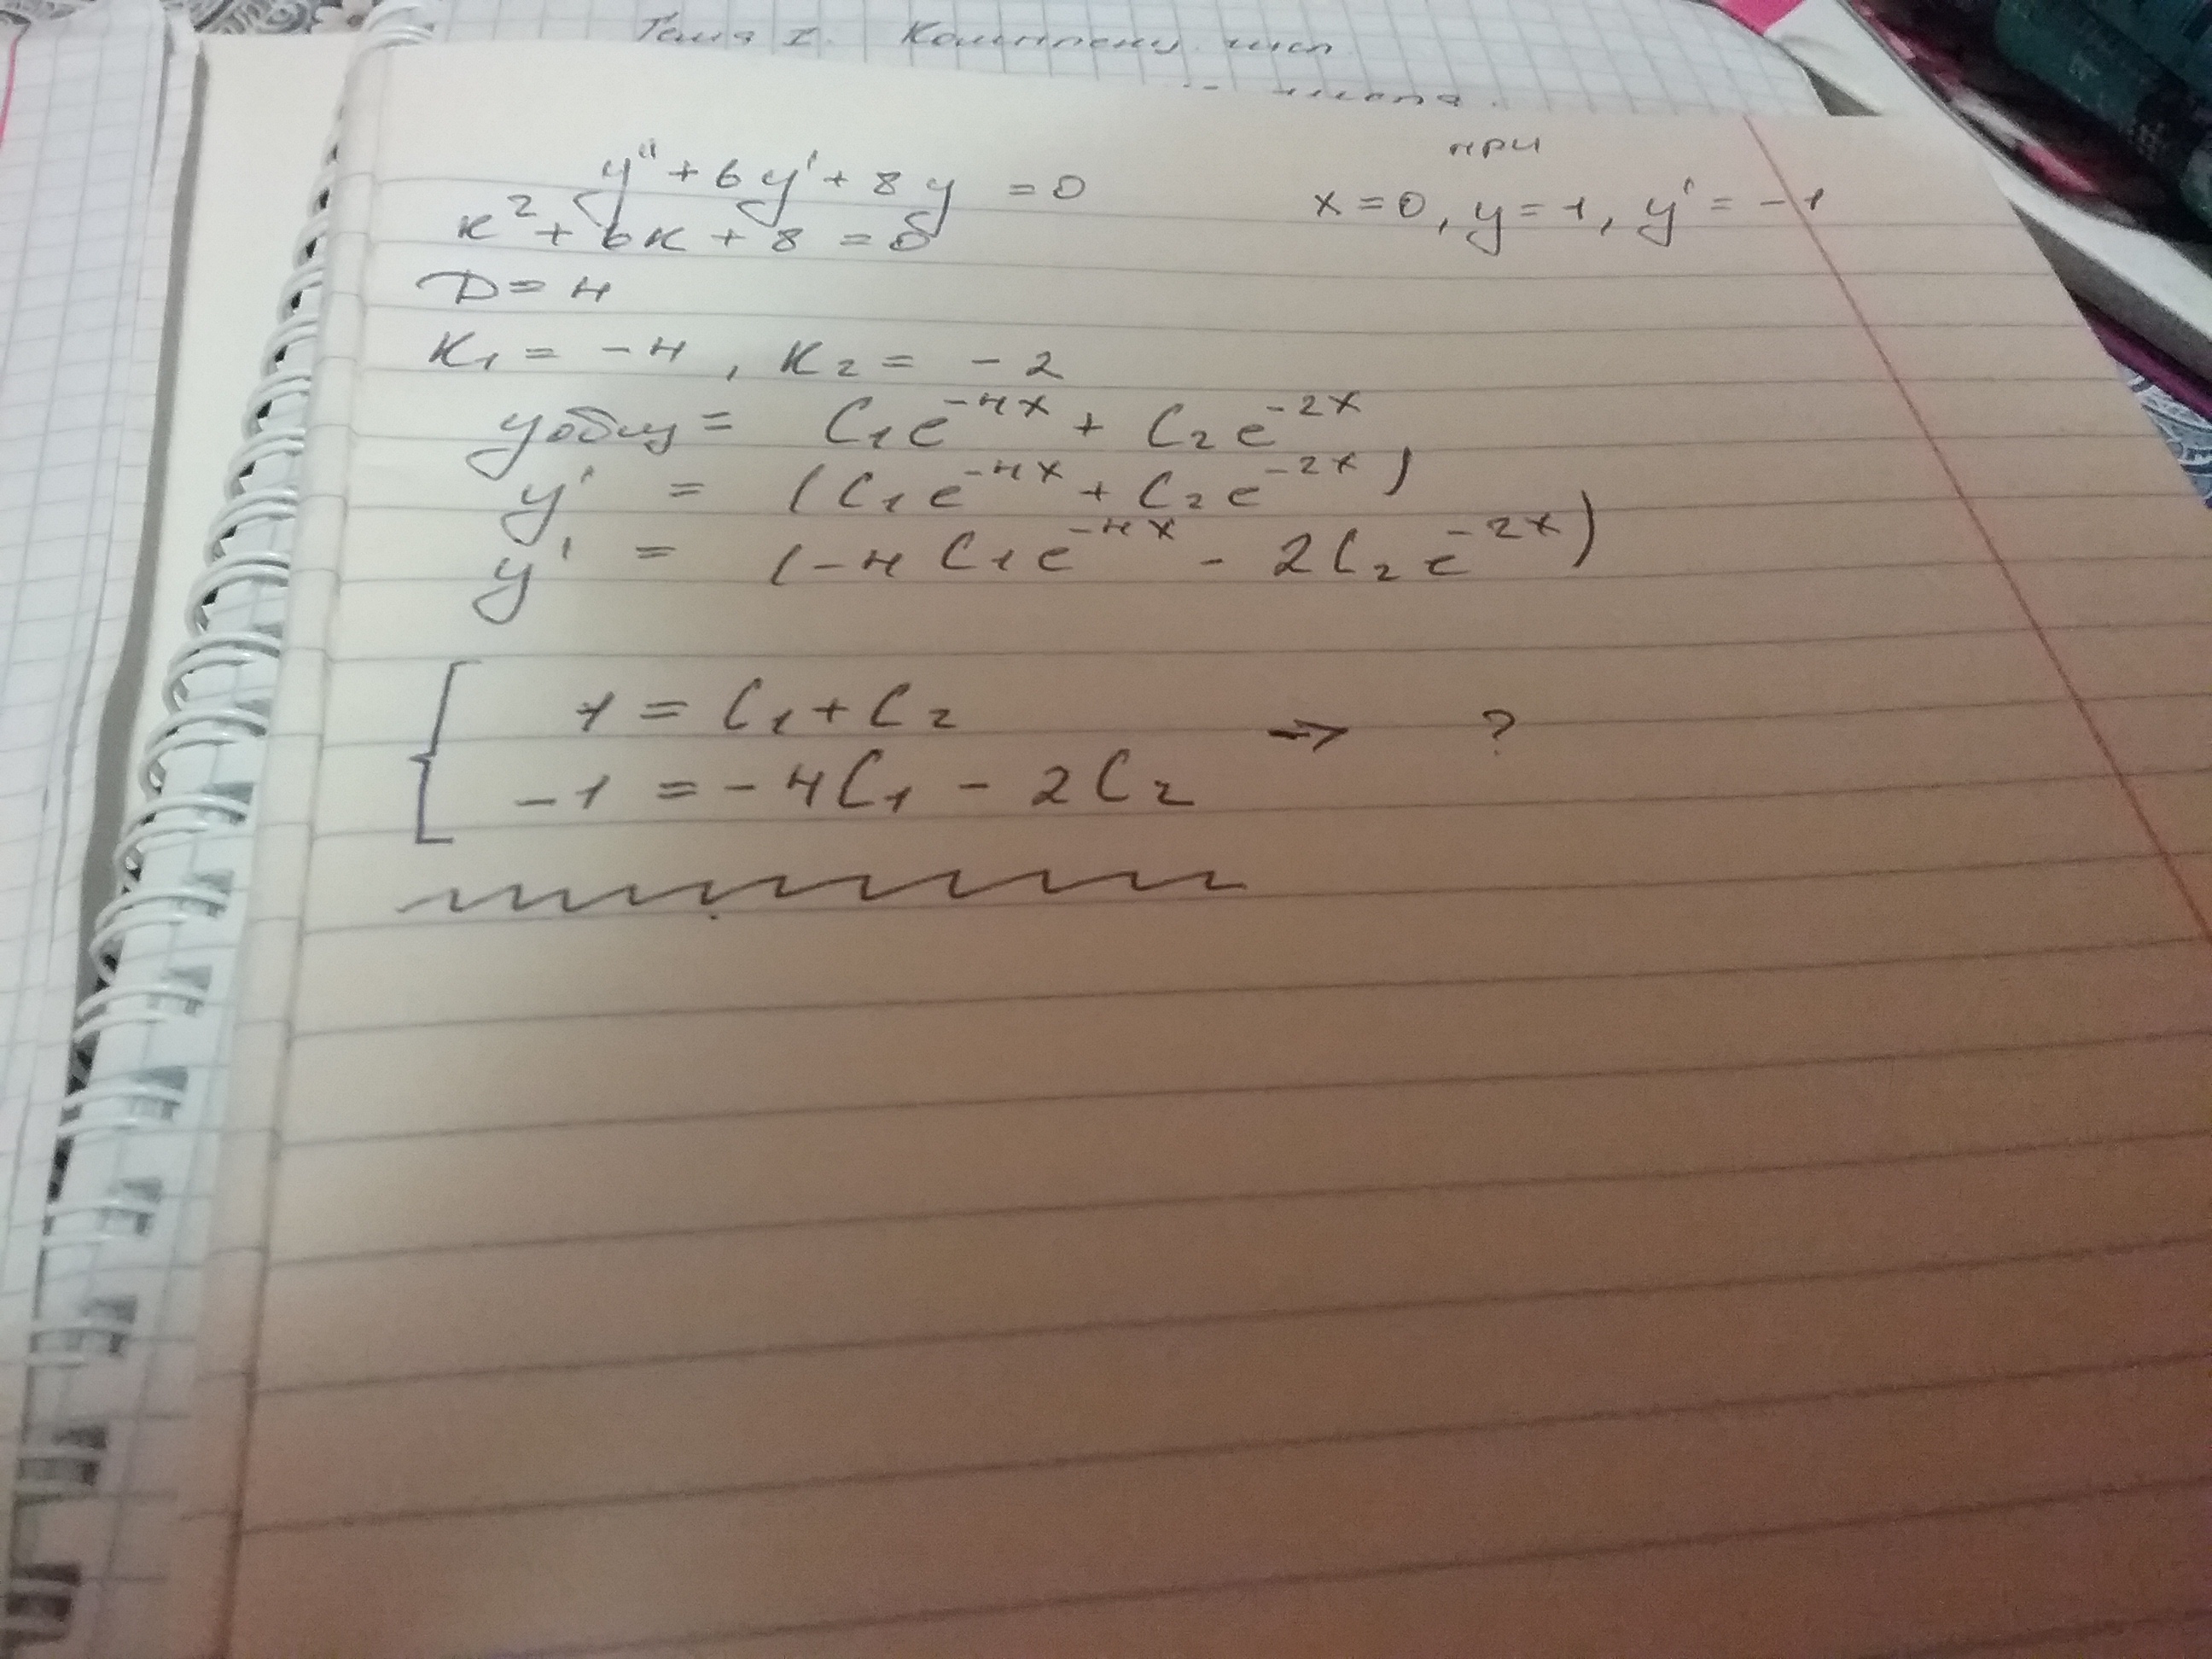 Тема I. Комплексн. числ
числа.
при
y'' + 6y' + 8y = 0
x = 0, y = 1, y' = -1
к² + 6к + 8 = 0
D = 4
К₁ = -4, К₂ = -2
yобщ = C₁e⁻⁴ˣ + C₂e⁻²ˣ
y' = (C₁e⁻⁴ˣ + C₂e⁻²ˣ)
y' = (-4C₁e⁻⁴ˣ - 2C₂e⁻²ˣ)
{ 1 = C₁ + C₂ → ?
-1 = -4C₁ - 2C₂